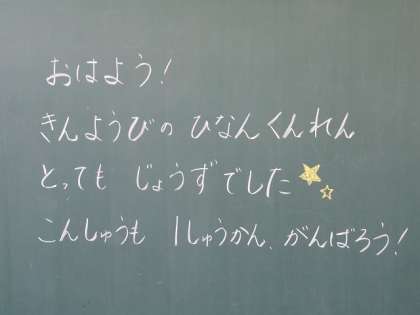 おはよう!
きんようびの ひなんくんれん
とっても じょうずでした
こんしゅうも 1しゅうかん、がんばろう!